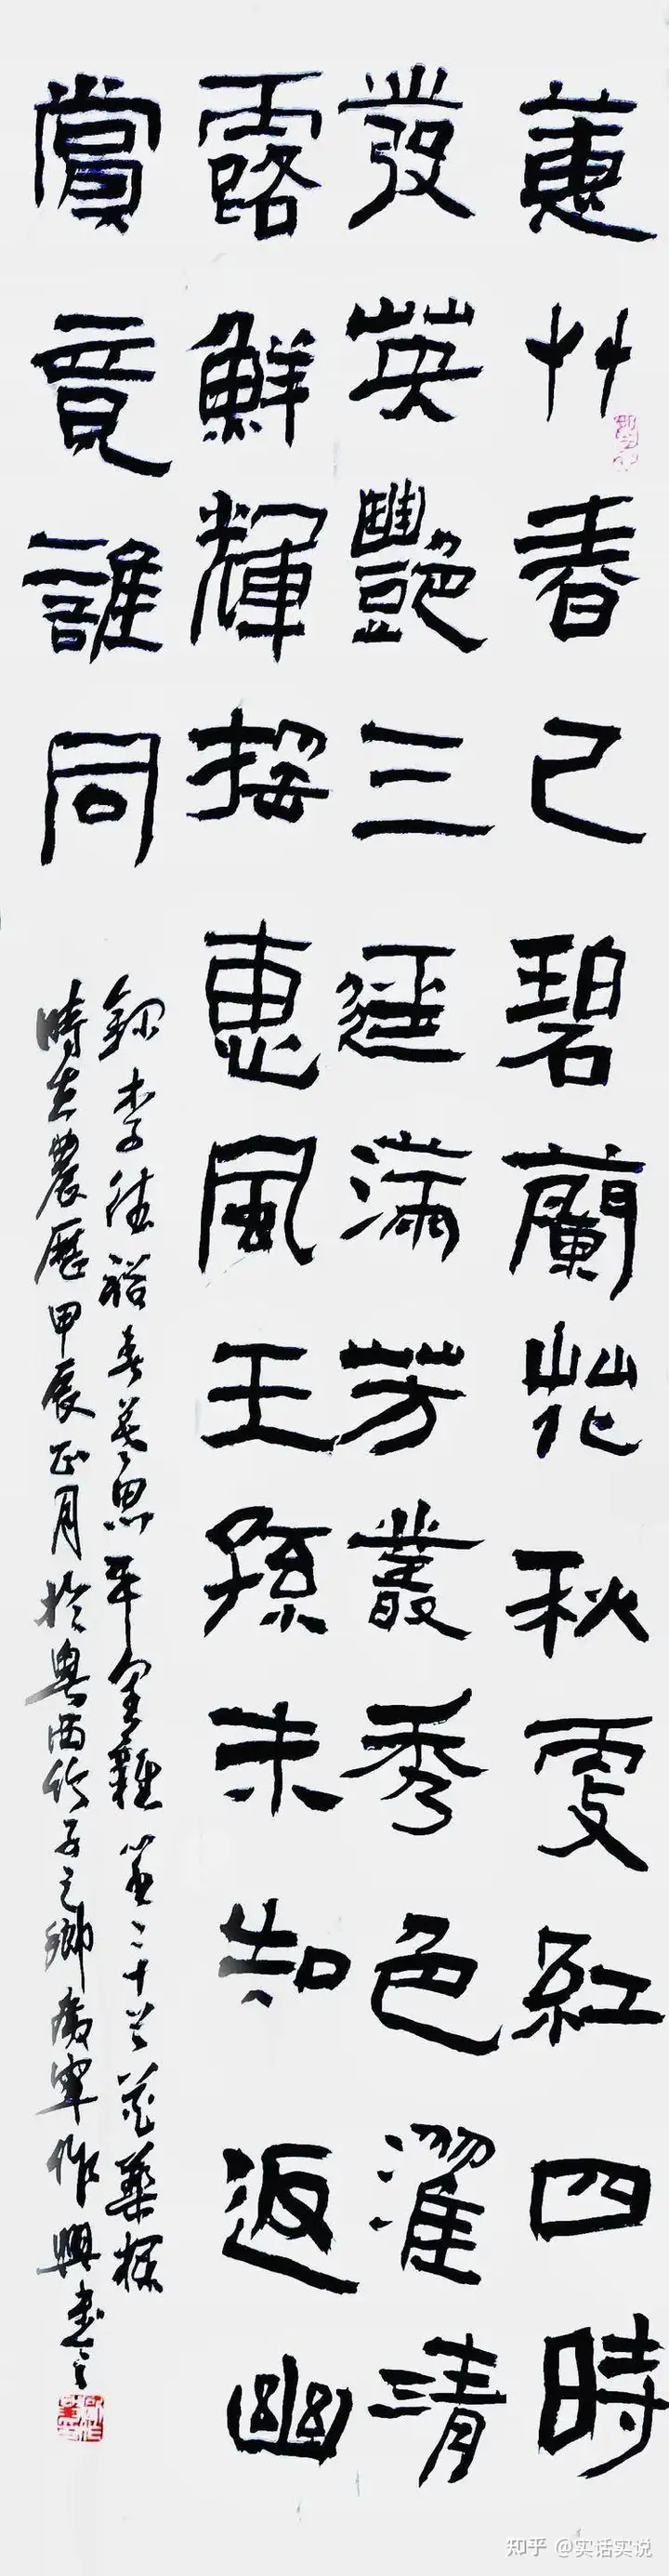 蕙艸春已碧蘭花秋更紅四時
發英豔三逕滿芳叢秀色濯清
露鮮輝搖惠風王孫未知返幽
賞竟誰同
錄李德裕春暮思平泉雜詠二十首花藥欄
時在農歷甲辰正月於粵西竹子之鄉廣寧作興書
知乎 @实话实说